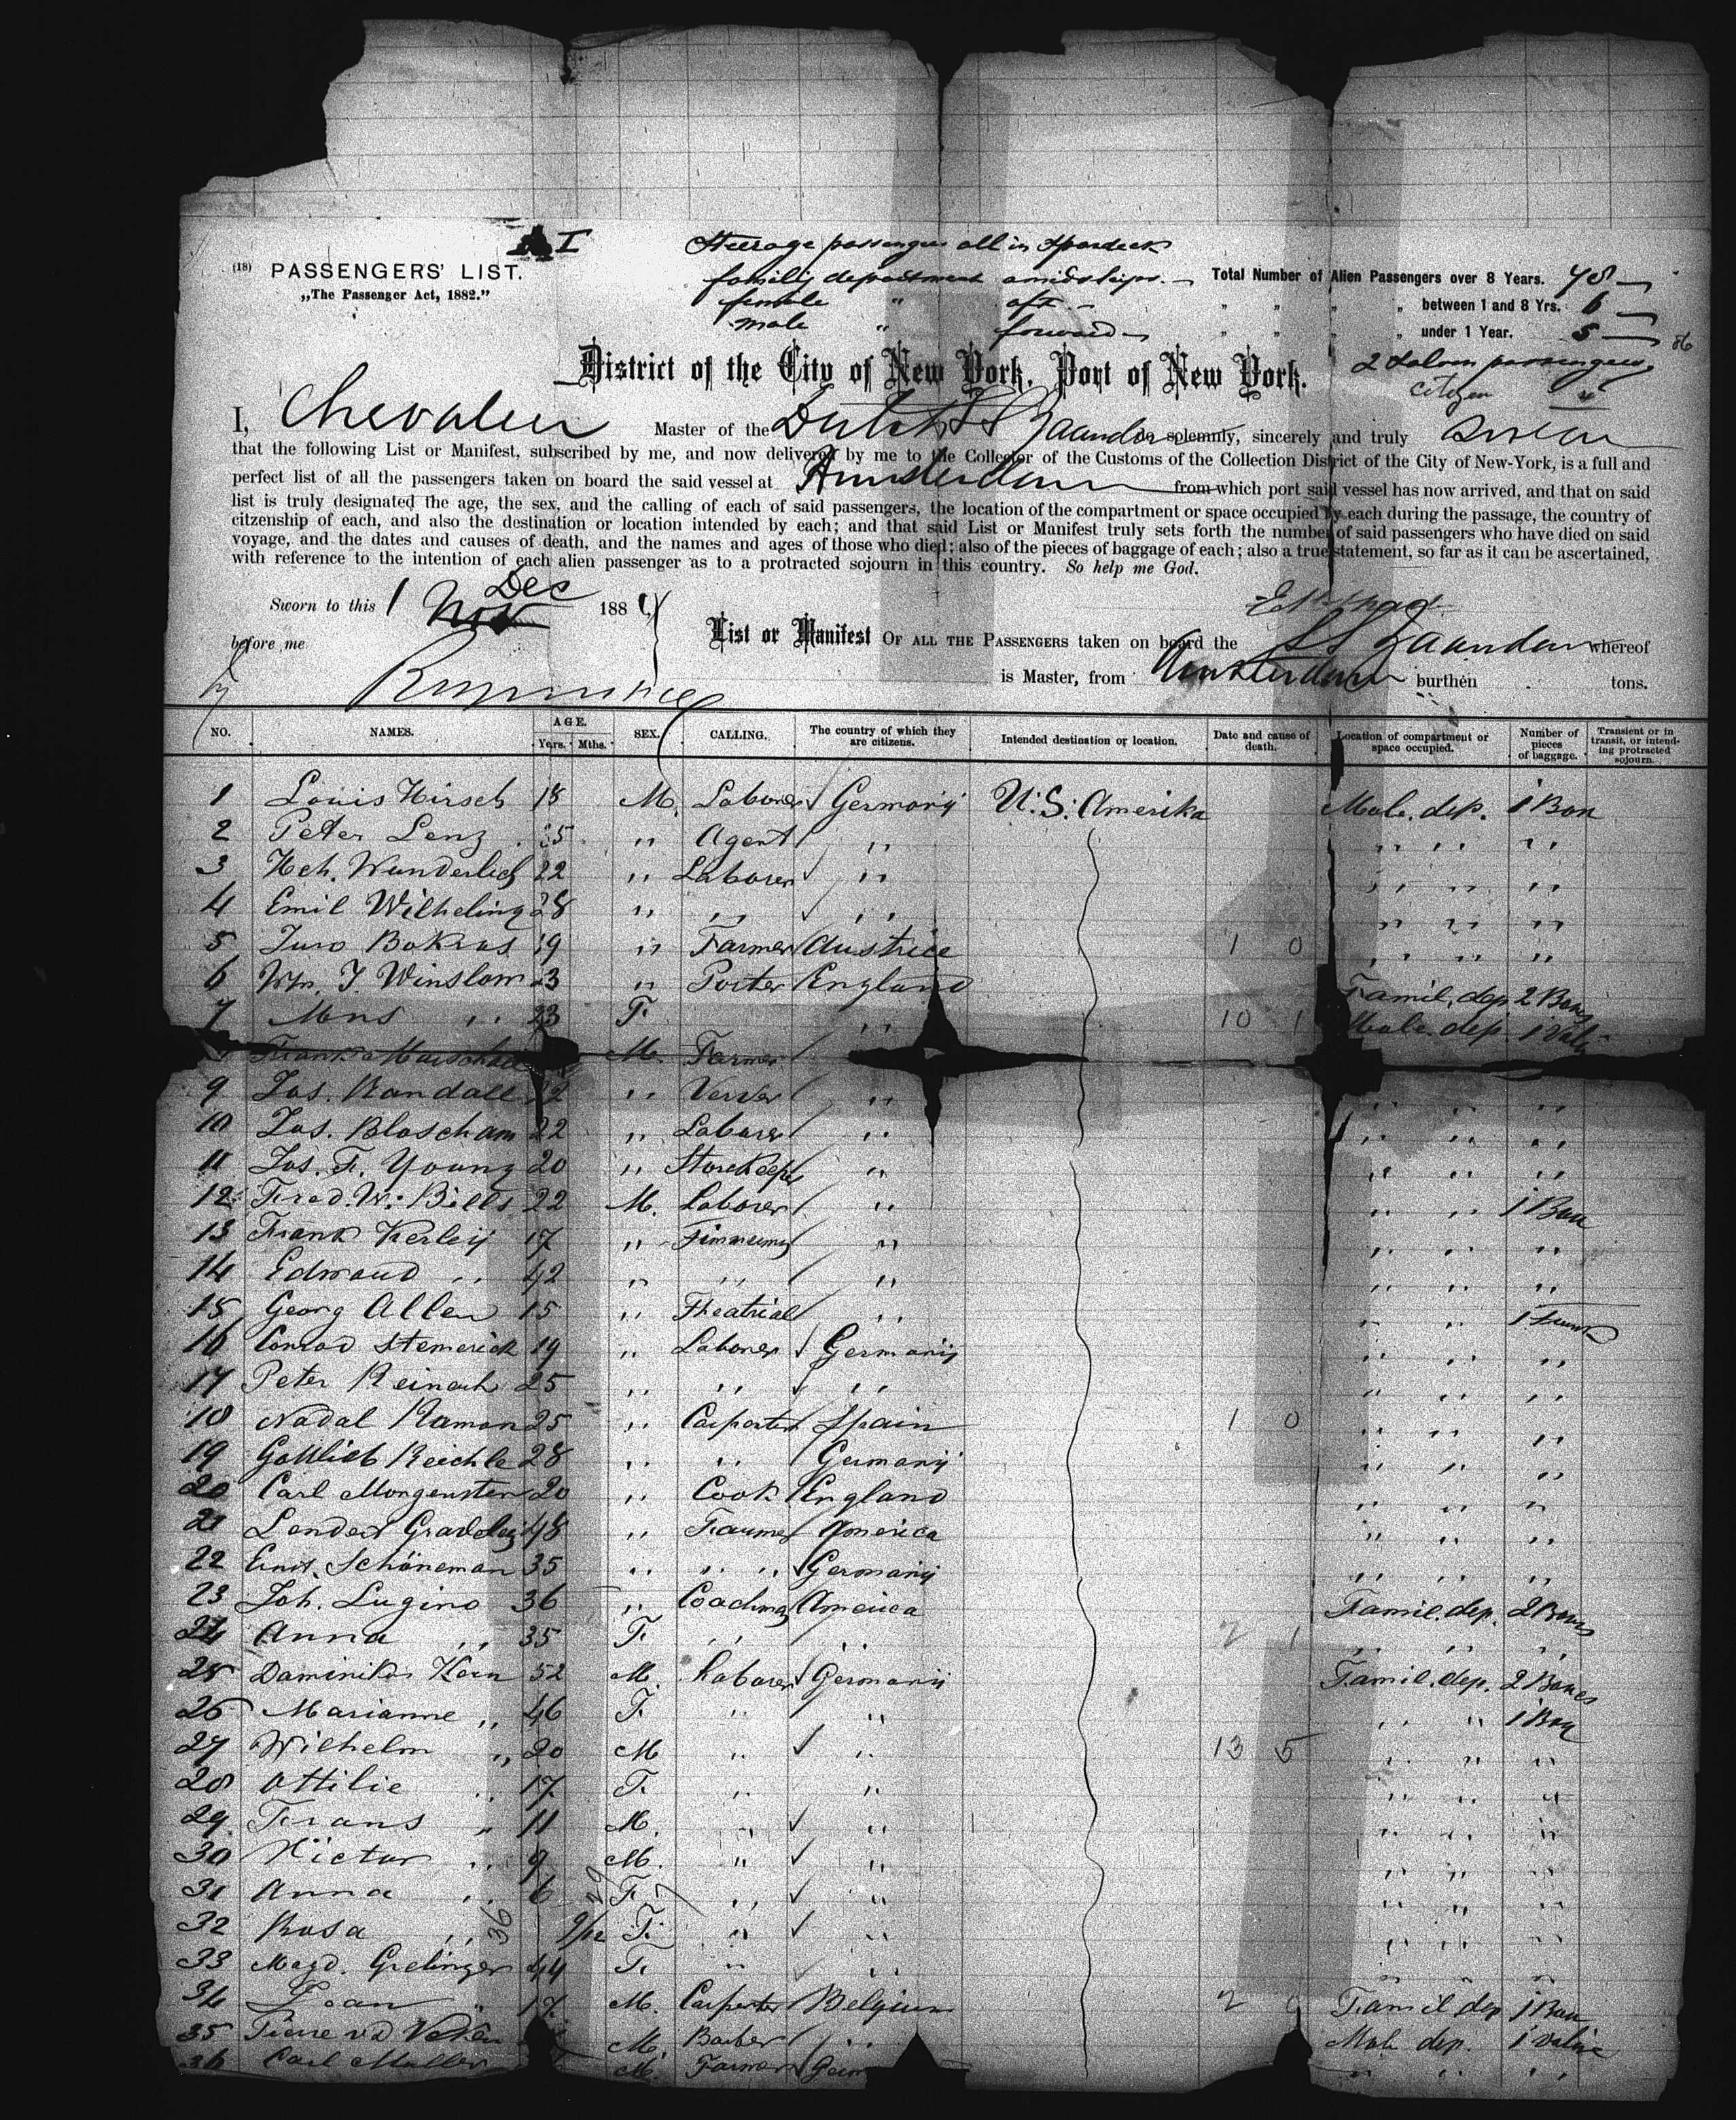 I
Steerage passengers all in Spardeck
(18) PASSENGERS' LIST.
family department amidships. — Total Number of Alien Passengers over 8 Years. 48 —
„The Passenger Act, 1882.”
female " aft — " " " " between 1 and 8 Yrs. 6 —
male " forward — " " " " under 1 Year. 5 —
86
2 Saloon passengers
District of the City of New York, Port of New York.
citizen 4
I, Chevalier Master of the Dutch SS Zaandam do solemnly, sincerely and truly swear
that the following List or Manifest, subscribed by me, and now delivered by me to the Collector of the Customs of the Collection District of the City of New-York, is a full and
perfect list of all the passengers taken on board the said vessel at Amsterdam from which port said vessel has now arrived, and that on said
list is truly designated the age, the sex, and the calling of each of said passengers, the location of the compartment or space occupied by each during the passage, the country of
citzenship of each, and also the destination or location intended by each; and that said List or Manifest truly sets forth the number of said passengers who have died on said
voyage, and the dates and causes of death, and the names and ages of those who died; also of the pieces of baggage of each; also a true statement, so far as it can be ascertained,
with reference to the intention of each alien passenger as to a protracted sojourn in this country. So help me God.
Dec
Sworn to this 1 Nov 188
before me
List or Manifest OF ALL THE PASSENGERS taken on board the SS Zaandam whereof
is Master, from Amsterdam burthen . tons.
NO. NAMES. AGE. Years. Mths. SEX. CALLING. The country of which they are citizens. Intended destination or location. Date and cause of death. Location of compartment or space occupied. Number of pieces of baggage. Transient or in transit, or intending protracted sojourn.
1 Louis Hirsch 18 M. Laborer Germany U.S. Amerika Male. dep. 1 Box
2 Peter Lenz 35 " Agent " " " "
3 Hch. Wunderlich 22 " Laborer " " " "
4 Emil Wilheling 28 " " " " " "
5 Bokros 19 " Farmer Austrice 1 0 " " "
6 Wm. J. Winslom 23 " Porter England Famil. dep 2 Box
7 Mrs " 23 F. " 10 1 Male. dep. 1 Vali
Frank Marschall M. Farmer
9 Jos. Randall 22 " Verver " " " "
10 Jos. Bloscham 22 " Laborer " " " "
11 Jos. F. Young 20 " Storekeeper " " " "
12 Fred. W. Bills 22 M. Laborer " " " 1 Box
13 Frank Kerley 17 " Timmerman " " " "
14 Edward " 42 " " " " " "
15 Georg Allen 15 " Theatrical " " " 1 Trunk
16 Conrad Stemerick 19 " Laborer Germany " " "
17 Peter Reinach 25 " " " " " "
18 Nadal Ramon 25 " Carpenter Spain 1 0 " " "
19 Gottlieb Reichle 28 " " Germany " " "
20 Carl Morgenstern 20 " Cook England " " "
21 Lendert 48 " Farmer America " " "
22 Ernst. Schöneman 35 " " " Germany " " "
23 Joh. Lugino 36 " Coachman America Famil. dep. 2 Boxes
24 Anna " 35 F. " " 2 1 " " "
25 Daminik Kern 52 M. Laborer Germany Famil. dep. 2 Boxes
26 Marianne " 46 F. " " " " 1 Box
27 Wilhelm " 20 M " " 13 5 " " "
28 Ottilie " 17 F. " " " " "
29 Frans " 11 M. " " " " "
30 Victor " 9 M. " " " " "
31 Anna " 6 F. " " " "
32 Rosa " 36 9/12 F. " " " "
33 Magd. Grelinger 44 F. " " " " "
34 Jean " 17 M. Carpenter Belgium 2 0 Famil dep 1 Box
35 Pierre vd M. Barber " Male dep. 1 Valise
36 Carl Muller M. Farmer Germ " " "